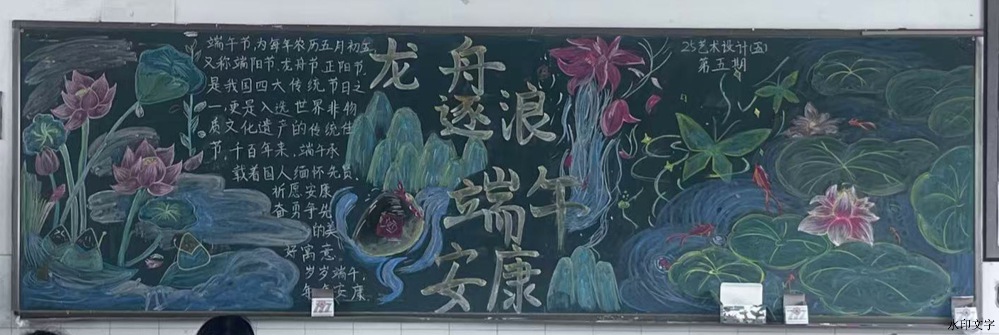 端午节,为每年农历五月初五,
又称端阳节.龙舟节.正阳节.
是我国四大传统节日之
一.更是入选世界非物
质文化遗产的传统佳
节,千百年来,端午承
载着国人缅怀先贤.
祈愿安康
奋勇争先
的美
好寓意.
岁岁端午,
安康.
龙舟
逐浪
端午
安康
25艺术设计(五)
第五期
水印文字